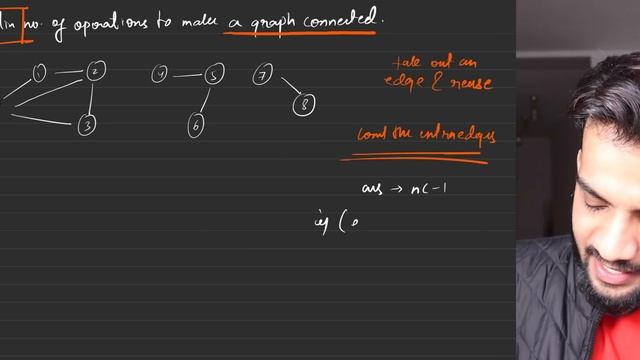 in no. of operations to make a graph connected.
1 2 4 5 7
take out an
edge & reuse
3 6 8
count the extraedges
ans → nc - 1
if (